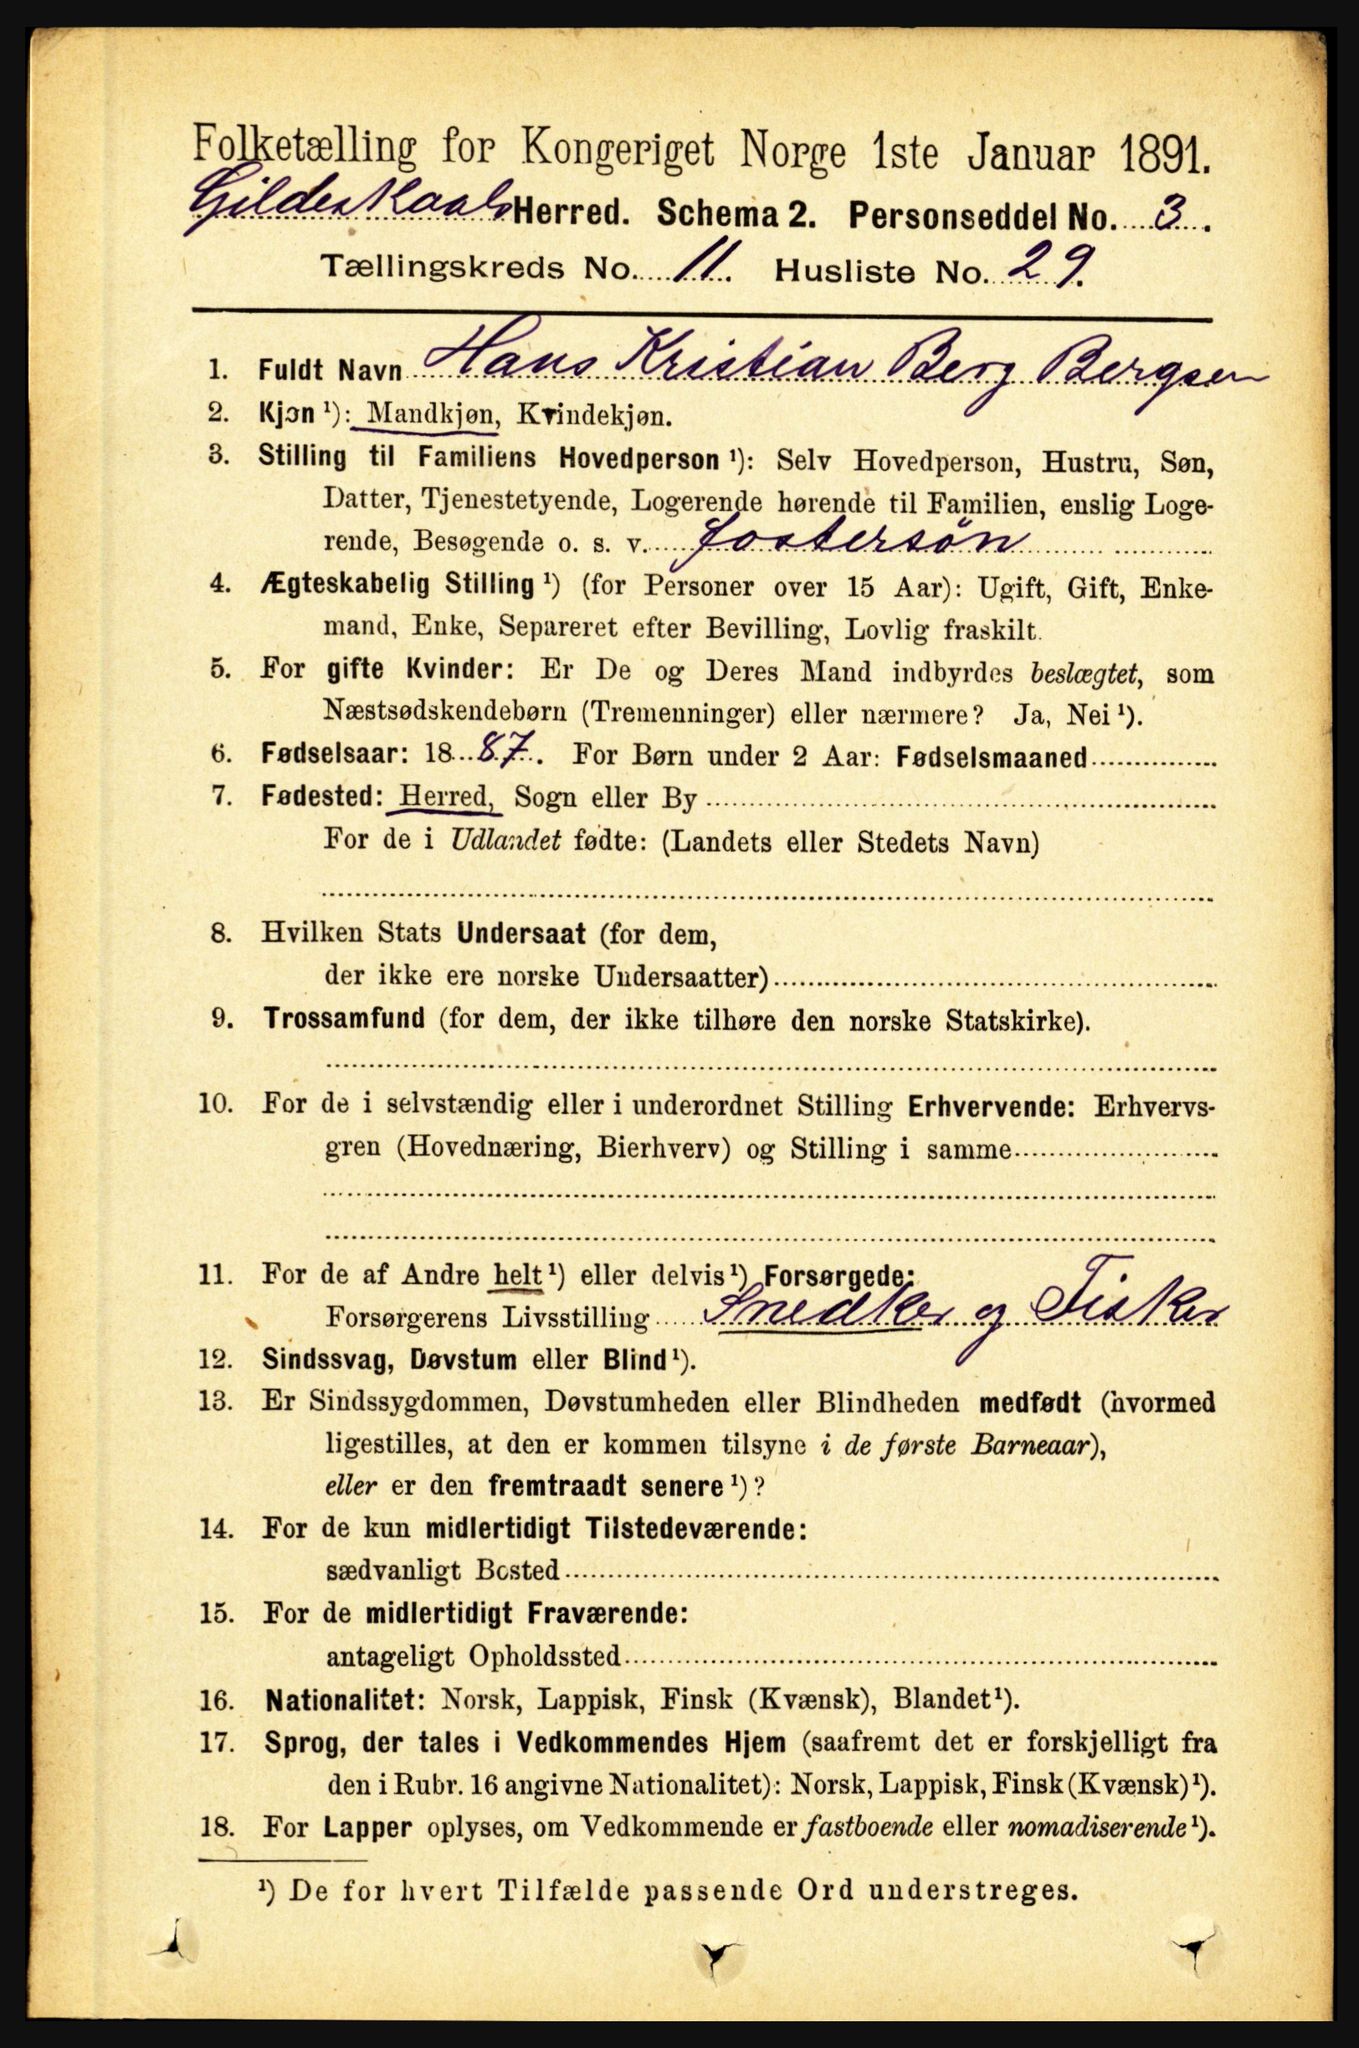 Folketælling for Kongeriget Norge 1ste Januar 1891.
Gildeskaals Herred. Schema 2. Personseddel No. 3.
Tællingskreds No. 11. Husliste No. 29.
1. Fuldt Navn Hans Kristian Berg Bergsen
2. Kjøn ¹): Mandkjøn, Kvindekjøn.
3. Stilling til Familiens Hovedperson ¹): Selv Hovedperson, Hustru, Søn,
Datter, Tjenestetyende, Logerende hørende til Familien, enslig Loge-
rende, Besøgende o. s. v. fostersøn
4. Ægteskabelig Stilling ¹) (for Personer over 15 Aar): Ugift, Gift, Enke-
mand, Enke, Separeret efter Bevilling, Lovlig fraskilt.
5. For gifte Kvinder: Er De og Deres Mand indbyrdes beslægtet, som
Næstsødskendebørn (Tremenninger) eller nærmere? Ja, Nei ¹).
6. Fødselsaar: 1887. For Børn under 2 Aar: Fødselsmaaned
7. Fødested: Herred, Sogn eller By
For de i Udlandet fødte: (Landets eller Stedets Navn)
8. Hvilken Stats Undersaat (for dem,
der ikke ere norske Undersaatter)
9. Trossamfund (for dem, der ikke tilhøre den norske Statskirke).
10. For de i selvstændig eller i underordnet Stilling Erhvervende: Erhvervs-
gren (Hovednæring, Bierhverv) og Stilling i samme
11. For de af Andre helt ¹) eller delvis ¹) Forsørgede:
Forsørgerens Livsstilling Snedker og Fisker
12. Sindssvag, Døvstum eller Blind ¹).
13. Er Sindssygdommen, Døvstumheden eller Blindheden medfødt (hvormed
ligestilles, at den er kommen tilsyne i de første Barneaar),
eller er den fremtraadt senere ¹)?
14. For de kun midlertidigt Tilstedeværende:
sædvanligt Bosted
15. For de midlertidigt Fraværende:
antageligt Opholdssted
16. Nationalitet: Norsk, Lappisk, Finsk (Kvænsk), Blandet ¹).
17. Sprog, der tales i Vedkommendes Hjem (saafremt det er forskjelligt fra
den i Rubr. 16 angivne Nationalitet): Norsk, Lappisk, Finsk (Kvænsk) ¹).
18. For Lapper oplyses, om Vedkommende er fastboende eller nomadiserende ¹).
¹) De for hvert Tilfælde passende Ord understreges.